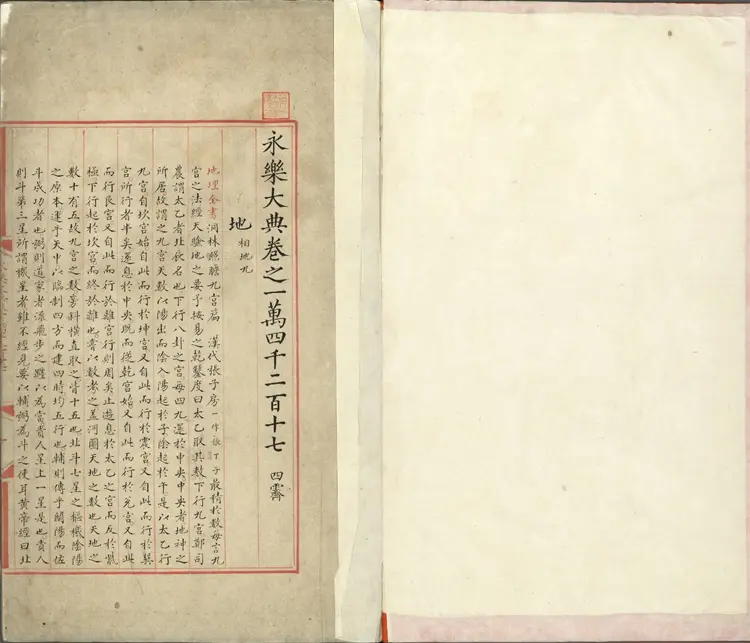 永樂大典卷之一萬四千二百十七 四霽
地 相地九
地理全書洞林照膽九宮篇 漢代張子房一作張丁子最精於數每言九
宮之法經天驗地之要予按易之乾鑿度曰太乙取其數下行九宮鄭司
農謂太乙者北辰名也下行八卦之宮每四九還於中央中央者地神之
所居故謂之九宮天數以陽出而陰入陽起於子陰起於午是以太乙行
九宮自坎宮始自此而行於坤宮又自此而行於震宮又自此而行於巽
宮所行者半矣還息於中央既而從乾宮始又自此而行於兌宮又自此
而行艮宮又自此而行於離宮行則周矣止遊息於太乙之宮而反於紫
極下行起於坎宮而終於離也嘗以數考之蓋河圖天地之數也天地之
數十有五故九宮之數旁斜橫直取之皆十五也北斗七星之樞機陰陽
之原本運乎天中以臨制四方而建四時均五行也輔則傳乎闓陽而佐
斗成功者也弼則道家者流飛步之以為富貴人星上一星是也貴人
則斗第三星所謂機星者雖不經見要以輔弼為斗之使耳黃帝經曰北